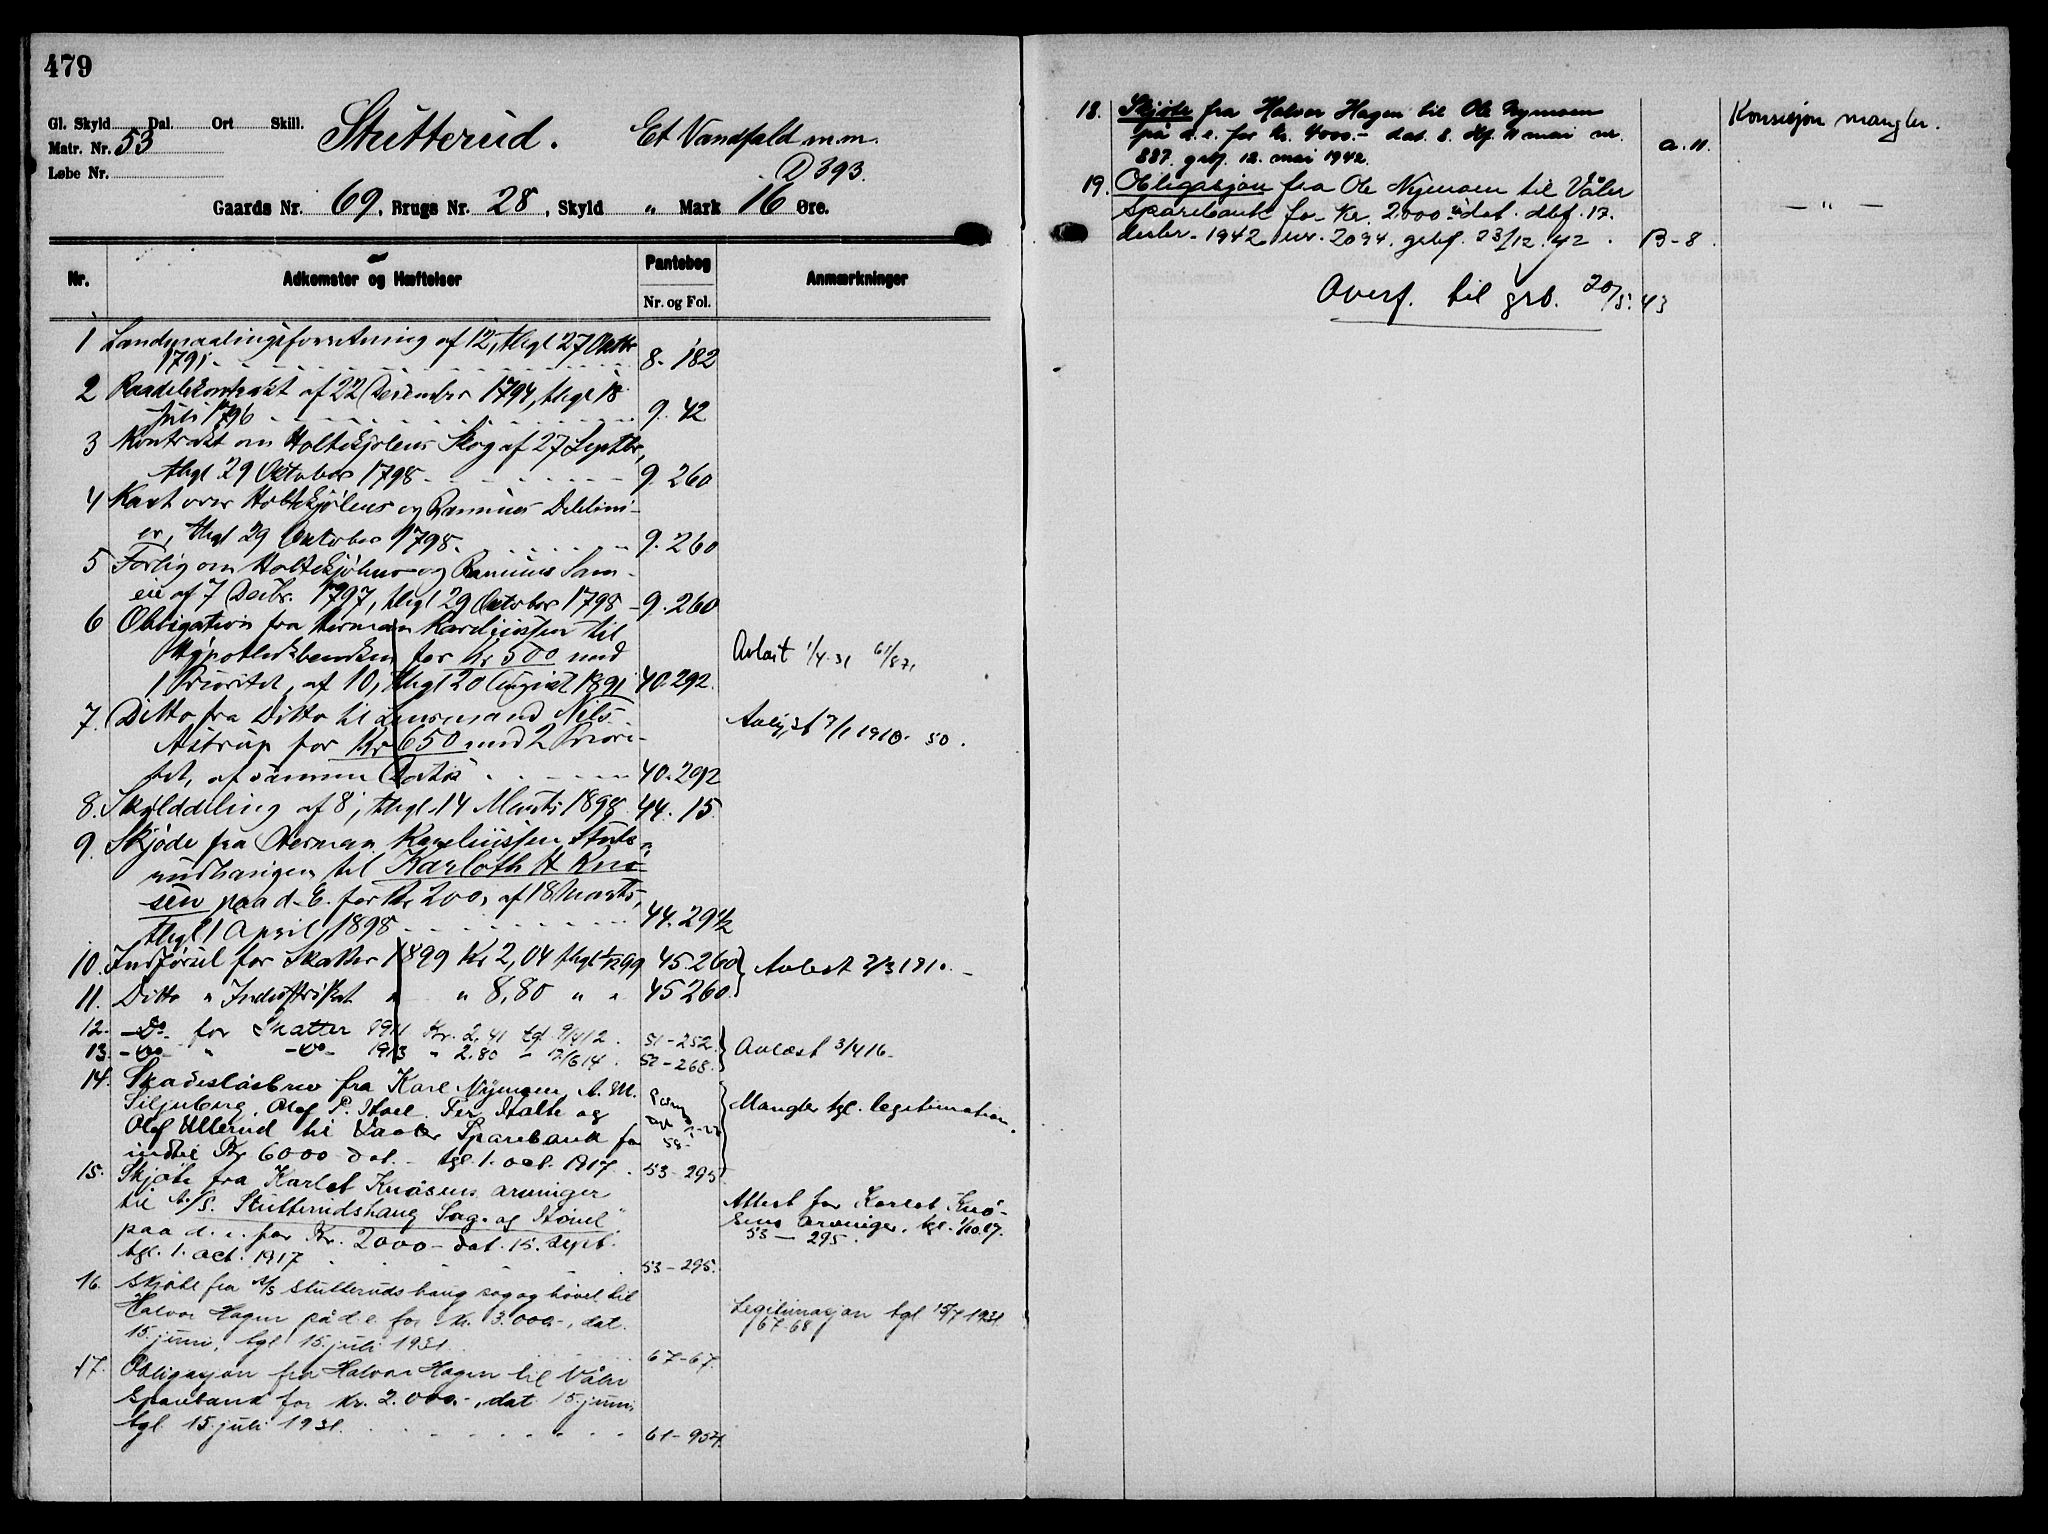 479
Gl. Skyld Dal. Ort Skill.
Matr. Nr. 53
Løbe Nr.
Stutterud.
Et Vandfald m.m.
D 393.
Gaards Nr. 69, Brugs Nr. 28, Skyld " Mark 16 Øre.
Nr.
Adkomster og Hæftelser
Pantebog
Nr. og Fol.
Anmærkninger
1 Landmaalingsforretning af 12, thgl 27 Oktbr
1791 8. 182
2 Raadelskontrakt af 22 December 1794, thgl 18
Juli 1796 9. 42
3 Kontrakt om Holtekjølens Skog af 27 Septbr,
thgl 29 Oktober 1798 9. 260
4 Kart over Holtekjølens og Rønnies Delelini-
er, thgl 29 Oktober 1798. 9. 260
5 Forlig om Holtekjølens og Sam-
eie af 7 Decbr. 1797, thgl 29 Oktober 1798 - 9. 260
6 Obligation fra Herman Kareliussen til
Hypothekbanken for Kr 500 med
1 Prioritet, af 10, thgl 20 August 1891 40.292.
Avlæst 1/4.31 61/871
7. Ditto fra Ditto til Lensmand Nils
Astrup for Kr 650 med 2 Priori-
tet, af samme Datis 40.292
Avlyst 7/1 1910. 50.
8. Skylddeling af 8, thgl. 14 Marts 1898 44. 15.
9. Skjøde fra Herman Kareliussen Stutte-
rudhaugen til Karloth H Knø-
sen paa d. E. for Kr 200, af 18 Marts,
thgl 1 April 1898 44. 294/2
10. Indførsel for Skatter 1899 Kr 2,04 thgl 1/12 99 45.260
11. Ditto " Industriskat " " 8,80 " " 45 260.
Avlæst 2/3 1910. -
12. - Do - for Skatter 1911 Kr. 2,41 tgl 9/4 12. 51-252
13. - Do - " - Do - 1913 " 2.80 - 12/6 14. 52-268.
Avlæst 3/4 16 -
14. Skadesløsbrev fra Karl Nymoen, A. M.
Siljuberg, Olaf P. Hoel. Per Holte og
Olaf Ullerud til Vaaler Sparebank for
indtil Kr 6000 dat. - tgl. 1. oct. 1917. 53-295
Mangler tgl. legitimation.
15. Skjøte fra Karlot Knøsens arvinger
til A./S. Stutterudshaug Sag. og Høvel"
paa d. e. for Kr. 2000 - dat. 15. sept.
tgl. 1. oct. 1917 53-295.
Attest for Karlot Knø-
sens arvinger. tgl. 1/10 17.
53 - 295.
16. Skjøte fra A/S Stutteruds haug sag og høvel til
Halvor Hagen på d.e. for kr. 3.000.-, dat.
15. juni, tgl 15. juli 1931. 67-67.
Legitimasjon tgl 15/7 1931.
67-68
17. Obligasjon fra Halvor Hagen til Våler
Sparebank for kr. 2.000.-, dat 15. juni,
tgl 15. juli 1931. 61-954.
18. Skjøte fra Halvor Hagen til Ole Nymoen
på d.e. for kr. 4000.- dat. 8. dbf. 11 mai nr.
887. grbf. 12. mai 1942. a. 11.
Konsesjon mangler.
19. Obligasjon fra Ole Nymoen til Våler
Sparebank for Kr. 2.000.- dat. dbf. 17.
desbr. 1942 nr. 2094. grbf. 23/12. 42. B-8.
- " -
Overf. til grb. 20/5. 43